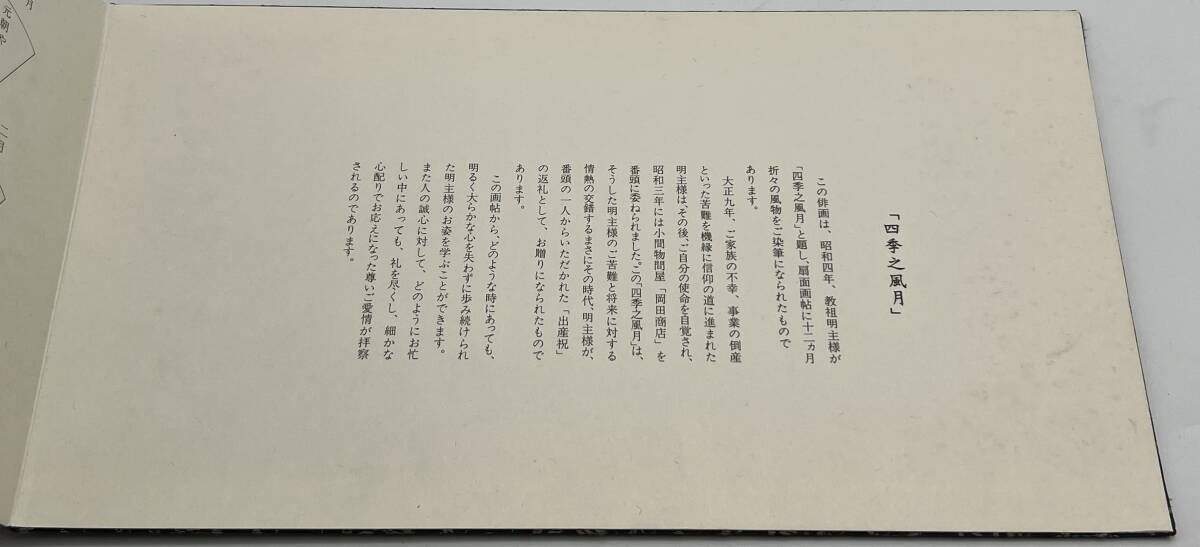 「四季之風月」
この俳画は、昭和四年、教祖明主様が
「四季之風月」と題し、扇面画帖に十二ヵ月
折々の風物をご染筆になられたもので
あります。
大正九年、ご家族の不幸、事業の倒産
といった苦難を機縁に信仰の道に進まれた
明主様は、その後、ご自分の使命を自覚され、
昭和三年には小間物問屋「岡田商店」を
番頭に委ねられました。この「四季之風月」は、
そうした明主様のご苦難と将来に対する
情熱の交錯するまさにその時代、明主様が、
番頭の一人からいただかれた「出産祝」
の返礼として、お贈りになられたもので
あります。
この画帖から、どのような時にあっても、
明るく大らかな心を失わずに歩み続けられ
た明主様のお姿を学ぶことができます。
また人の誠心に対して、どのようにお忙
しい中にあっても、礼を尽くし、細かな
心配りでお応えになった尊いご愛情が拝察
されるのであります。
月
元朝
二月